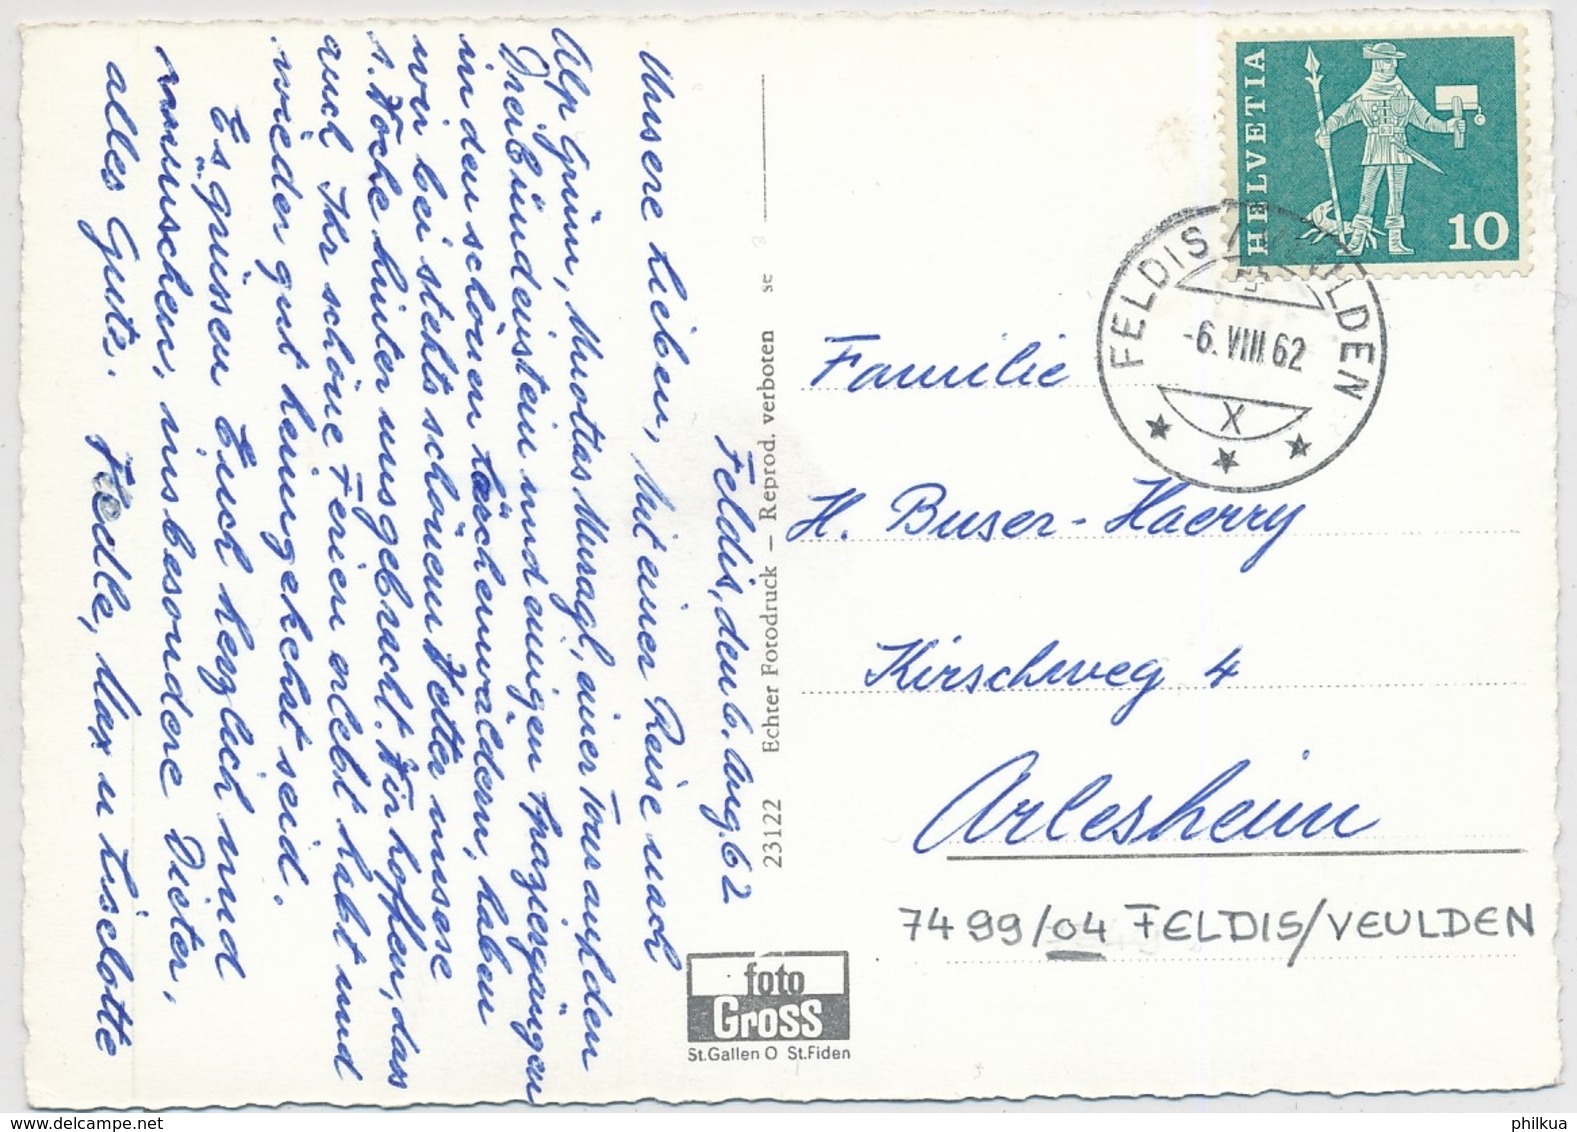 Feldis, den 6. Aug. 62
Unsere Lieben, Mit einer Reise nach
Alp Grüm, Muottas Muragl, einer Tour auf den
Dreibündenstein und einigen Spaziergängen
in den schönen Lärchenwäldern, haben
wir bei stehts schönem Wetter unsere
1. Woche hinter uns gebracht. Wir hoffen, dass
auch Ihr schöne Ferien erlebt habt und
wieder gut heimgekehrt seid.
Es grüssen Euch herzlich und
wünschen, insbesondere Dieter,
alles Gute. Hedle, Max u Liselotte
23122 Echter Fotodruck — Reprod. verboten se 3
foto
Gross
St.Gallen O St.Fiden
HELVETIA
10
FELDIS / VEULDEN
-6.VIII.62
X
Familie
H. Buser-Haerry
Kirschweg 4
Arlesheim
7499/04 FELDIS/VEULDEN
www.delcampe.net
philkua